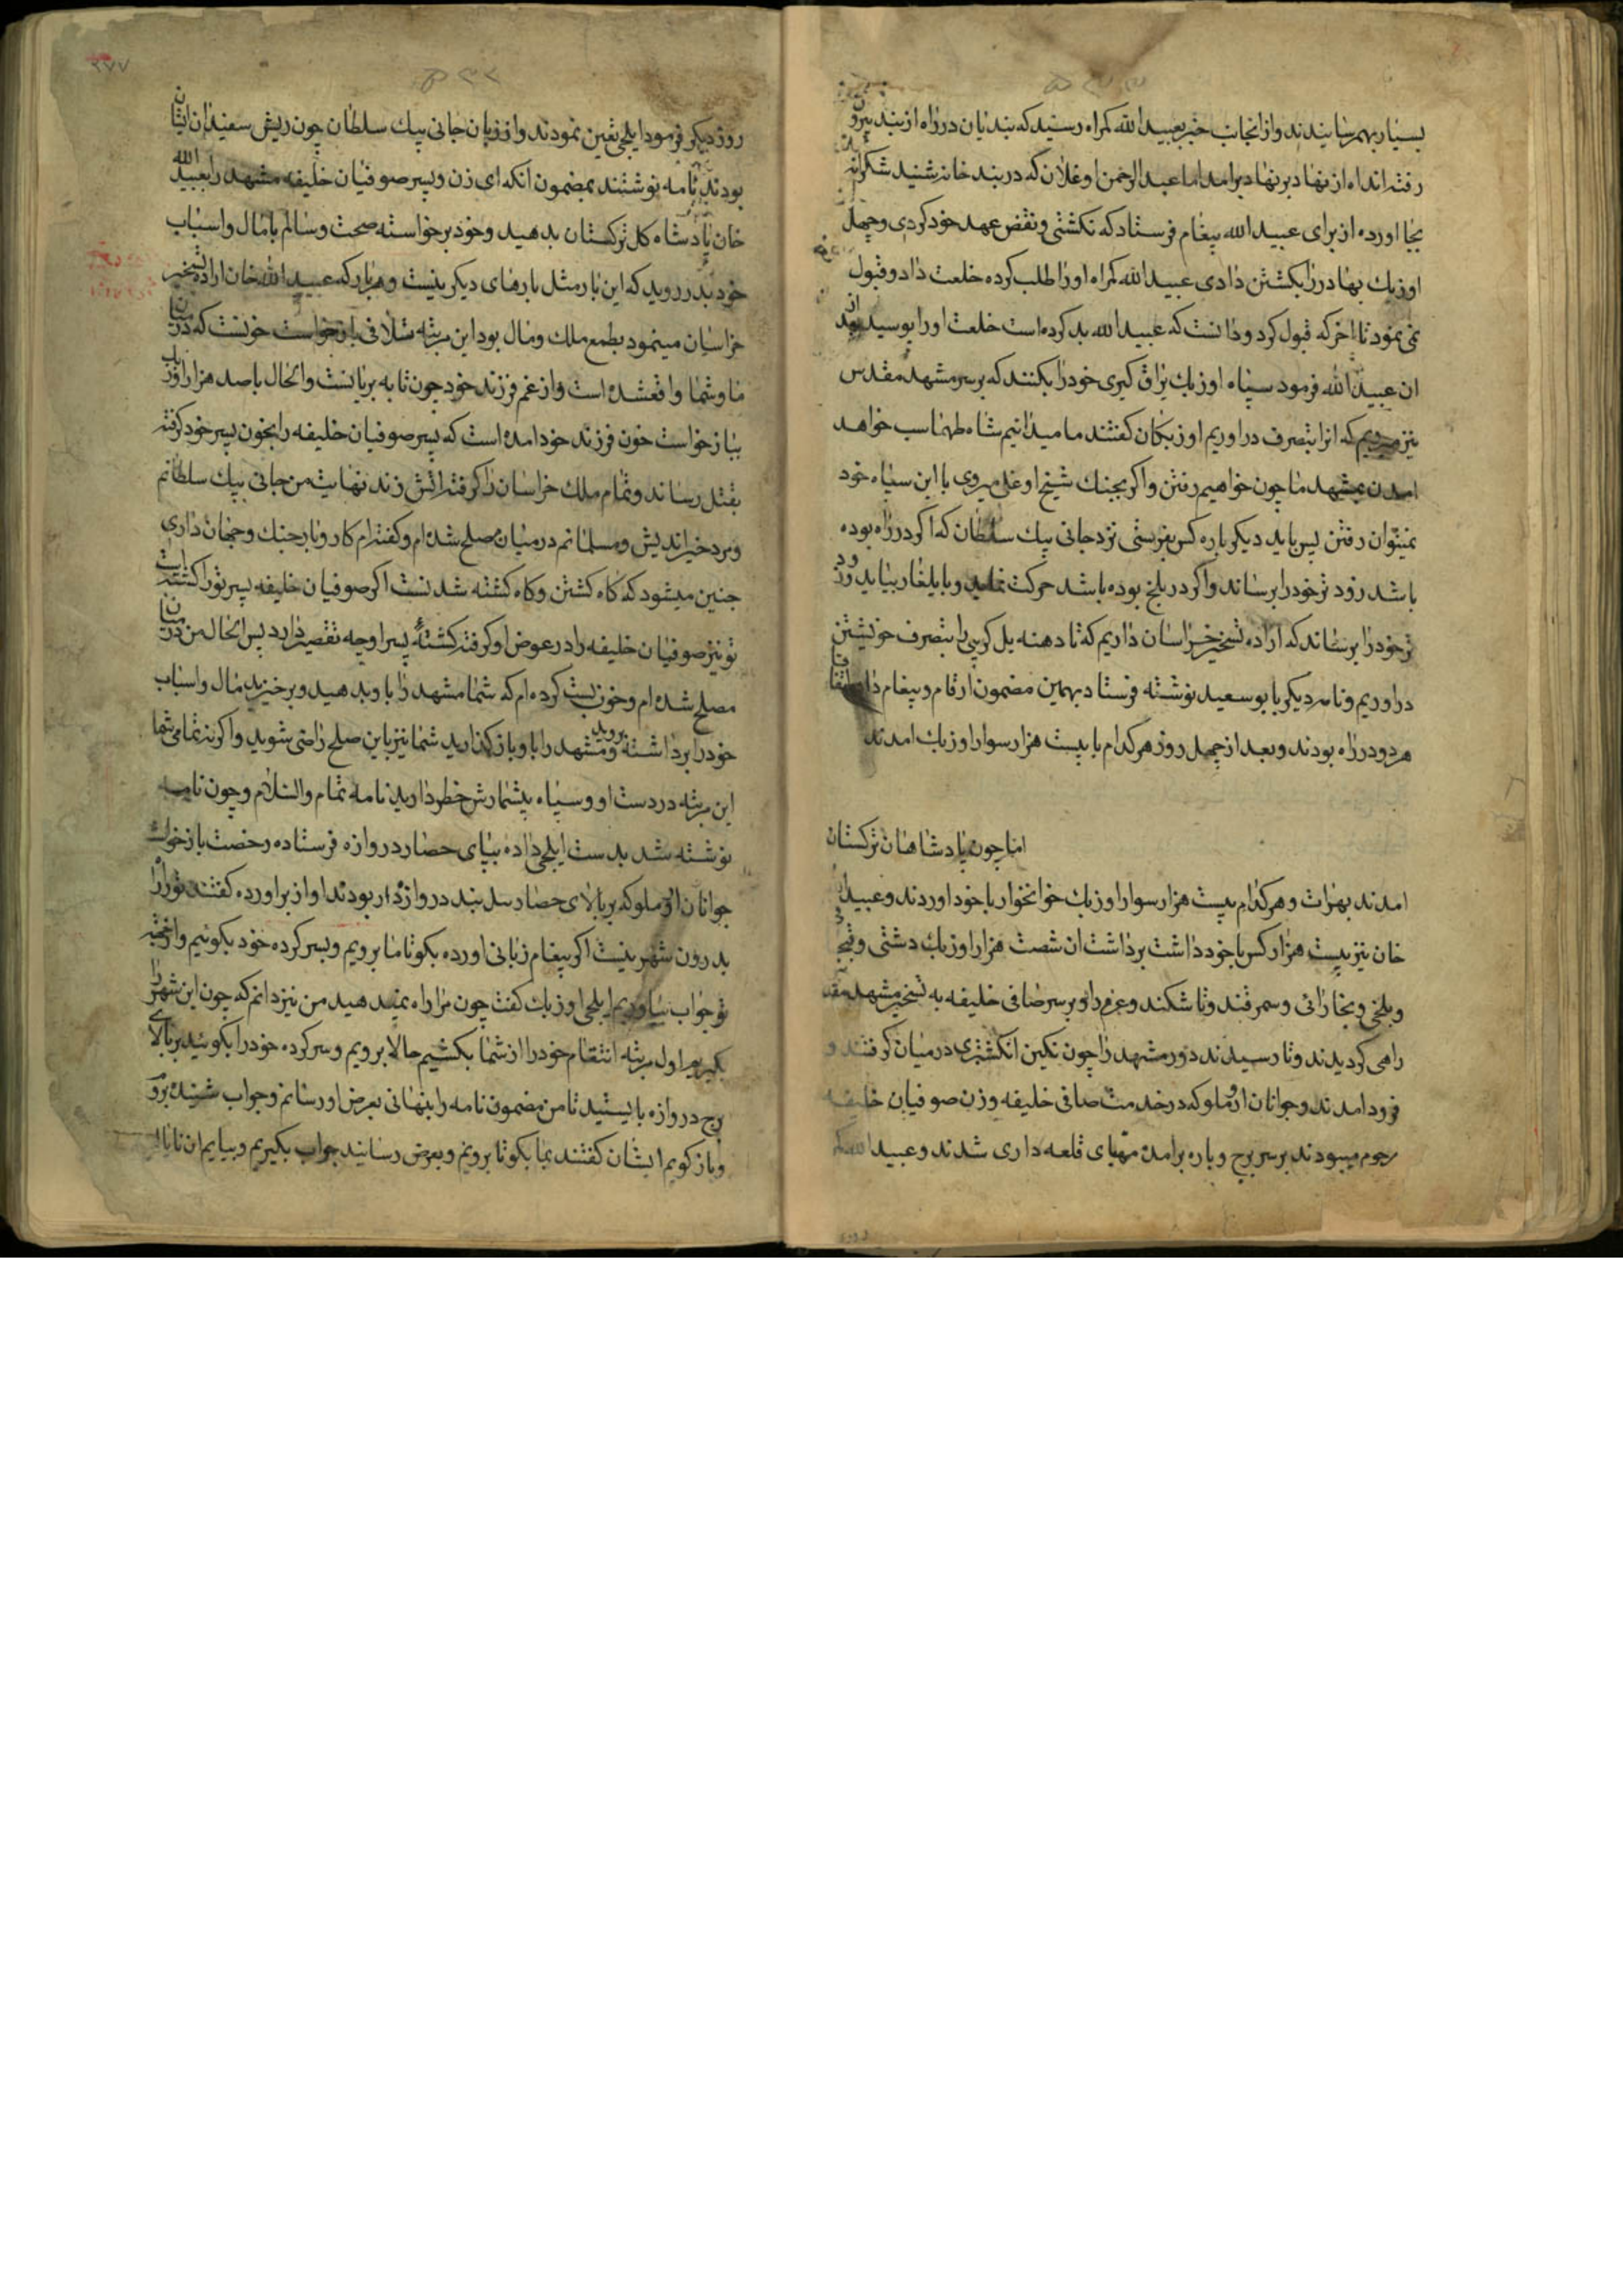 بسیار بهم رسانیدند و از انجانب خبر بعبید الله کمراه رسید که بندیان در راه از بند بیرون
رفته اند اه از نهاد بر نهاد برامد اما عبد الرحمن اوغلان که در بند خانه شنید شکرانه
بجا اورده از برای عبید الله پیغام فرستاد که نکشتی و نقض عهد خود کردی و چهل
اوزبك بهادر را بکشتن دادی عبید الله کمراه اورا طلب کرده خلعت داد و قبول
نمی نمود تا اخر که قبول کرد و دانست که عبید الله بد کرده است خلعت اورا بوسید بعد از
ان عبید الله فرمود سپاه اوزبك یراق کیری خود را بکنند که بر سر مشهد مقدس
نیز میرویم که انرا بتصرف دراوریم اوزبکان کفتند ما میدانیم شاه طهماسب خواهد
امدن بمشهد ما چون خواهیم رفتن و اکر بجنك شیخ اوغلی میروی با این سپاه خود
نمیتوان رفتن پس باید دیکر باره کس بفرستی نزد جانی بیك سلطان که اکر در راه بوده
باشد زود تر خود را برساند و اکر در بلخ بوده باشد حرکت نماید و با یلغار بیاید و زود
تر خود را برساند که اراده تسخیر خراسان داریم که تا دهنه پل کرپی را بتصرف خویشتن
دراوریم و نامه دیکر با بوسعید نوشته فرستاد بهمین مضمون ارقام و پیغام داد اتفاقا
هر دو در راه بودند و بعد از چهل روز هر کدام با بیست هزار سوار اوزبك امدند
اما چون پادشاهان ترکستان
امدند بهرات و هر کدام بیست هزار سوار اوزبك خوانخوار با خود اوردند و عبید الله
خان نیز بیست هزار کس با خود داشت برداشت ان شصت هزار اوزبك دشتی و قبچاقی
و بلخی و بخارائی و سمرقند و تاشکند و عزم داو بر سر صافی خلیفه به تسخیر مشهد مقدس
راهی کردیدند و تا رسیدند دور مشهد را چون نکین انکشتری در میان کرفتند و
فرود امدند و جوانان ارملو که در خدمت صافی خلیفه و زن صوفیان خلیفه
مرحوم میبودند بر سر برج و باره برامده مهیای قلعه داری شدند و عبید الله کمراه
۳۷۷
روز دیکر فرمود ایلچی تعین نمودند و از زبان جانی بیك سلطان چون ریش سفید ان ایشان
بودند نامه نوشتند بمضمون انکه ای زن و پسر صوفیان خلیفه مشهد را بعبید الله
خان پادشاه کل ترکستان بدهید و خود برخواسته صحت و سالم با مال و اسباب
خود بدر روید که این بار مثل بارهای دیکر نیست و هر بار که عبید الله خان اراده تسخیر
خراسان مینمود بطمع ملك و مال بود این مرتبه تلافی بازخواست خونست که در میان
ما و شما واقعشده است و از غم فرزند خود چون تابه بریانست و الحال با صد هزار اوزبك
ببازخواست خون فرزند خود امده است که پسر صوفیان خلیفه را بخون پسر خود کرفته
بقتل رساند و تمام ملك خراسان را کرفته اتش زند نهایت من جانی بیك سلطانم
و مرد خیر اندیش و مسلمانم در میان مصلح شده ام و کفته ام کار و بار جنك و جهان داری
چنین میشود که کاه کشتن و کاه کشته شد نست اکر صوفیان خلیفه پسر تورا کشته است
تو نیز صوفیان خلیفه را در عوض او کرفته کشتهٔ پسر او چه تقصیر دارد پس الحال من در میان
مصلح شده ام و خون بست کرده ام که شما مشهد را باو بدهید و برخیزید مال و اسباب
خود را برداشته بروید و مشهد را باو باز کذارید شما نیز باین صلح راضی شوید و اکر نه تمامی شما
این مرتبه در دست او و سپاه بیشمارش خطر دارید نامه تمام والسلام و چون نامه
نوشته شد بدست ایلچی داده بپای حصار دروازه فرستاده رخصت بازخواست
جوانان ارملو که بر بالای حصار سد بند دروازه دار بودند اواز براورده کفتند تورا راه
بدرون شهر نیست اکر پیغام زبانی اورده بکو تا ما برویم و بسر کرده خود بکوئیم و انچه
تو جواب بیاوریم ایلچی اوزبك کفت چون مرا راه نمید هید من نیز دانم که چون این شهر را
بکیریم اول مرتبه انتقام خود را از شما بکشیم حالا برویم و سر کرده خود را بکوئید بر بالای
برج دروازه بایستید تا من مضمون نامه را بنهانی بعرض او رسانم و جواب شنیده بروم
و باز کویم ایشان کفتند بما بکو تا برویم و بعرض رسانید جواب بکیریم و بیایم ان